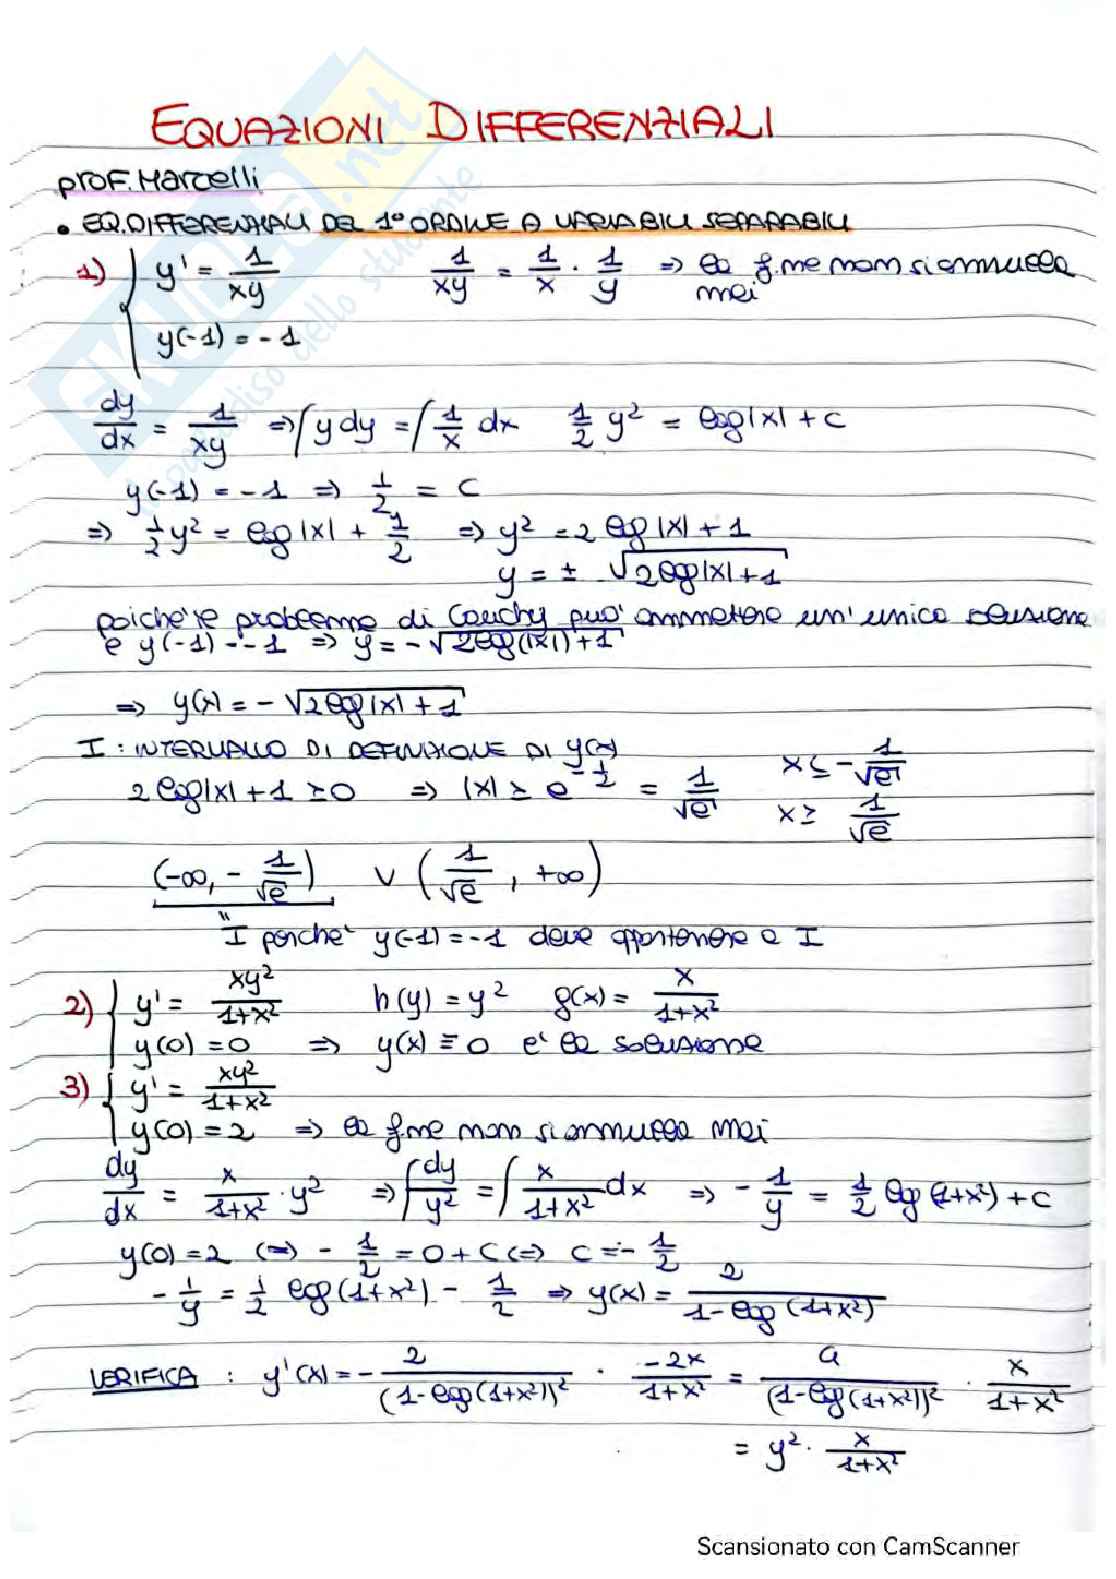 EQUAZIONI DIFFERENZIALI
prof. Marcelli
• EQ. DIFFERENZIALI DEL 1° ORDINE A VARIABILI SEPARABILI
1) { y' = 1/xy    1/xy = 1/x · 1/y ⇒ la f.ne non si annulla mai
y(-1) = -1
dy/dx = 1/xy ⇒ ∫ y dy = ∫ 1/x dx    1/2 y² = log|x| + c
y(-1) = -1 ⇒ 1/2 = c
⇒ 1/2 y² = log|x| + 1/2 ⇒ y² = 2 log|x| + 1
y = ± √(2log|x| + 1)
poiche' il problema di Cauchy puo' ammettere un' unica soluzione
e y(-1) = -1 ⇒ y = - √(2log(|x|) + 1)
⇒ y(x) = - √(2log|x| + 1)
I : INTERVALLO DI DEFINIZIONE DI y(x)
2 log|x| + 1 ≥ 0 ⇒ |x| ≥ e^(-1/2) = 1/√e    x ≤ - 1/√e
x ≥ 1/√e
(-∞, - 1/√e) ∨ (1/√e, +∞)
" I perche' y(-1) = -1 deve appartenere a I
2) { y' = xy²/1+x²    h(y) = y²    g(x) = x/1+x²
y(0) = 0 ⇒ y(x) ≡ 0 e' la soluzione
3) { y' = xy²/1+x²
y(0) = 2 ⇒ la f.ne non si annulla mai
dy/dx = x/1+x² · y² ⇒ ∫ dy/y² = ∫ x/1+x² dx ⇒ - 1/y = 1/2 log(1+x²) + c
y(0) = 2 (=) - 1/2 = 0 + c (=) c = - 1/2
- 1/y = 1/2 log(1+x²) - 1/2 ⇒ y(x) = 2/1-log(1+x²)
VERIFICA : y'(x) = - 2/(1-log(1+x²))² · -2x/1+x² = 4/(1-log(1+x²))² · x/1+x²
= y² · x/1+x²
Scansionato con CamScanner